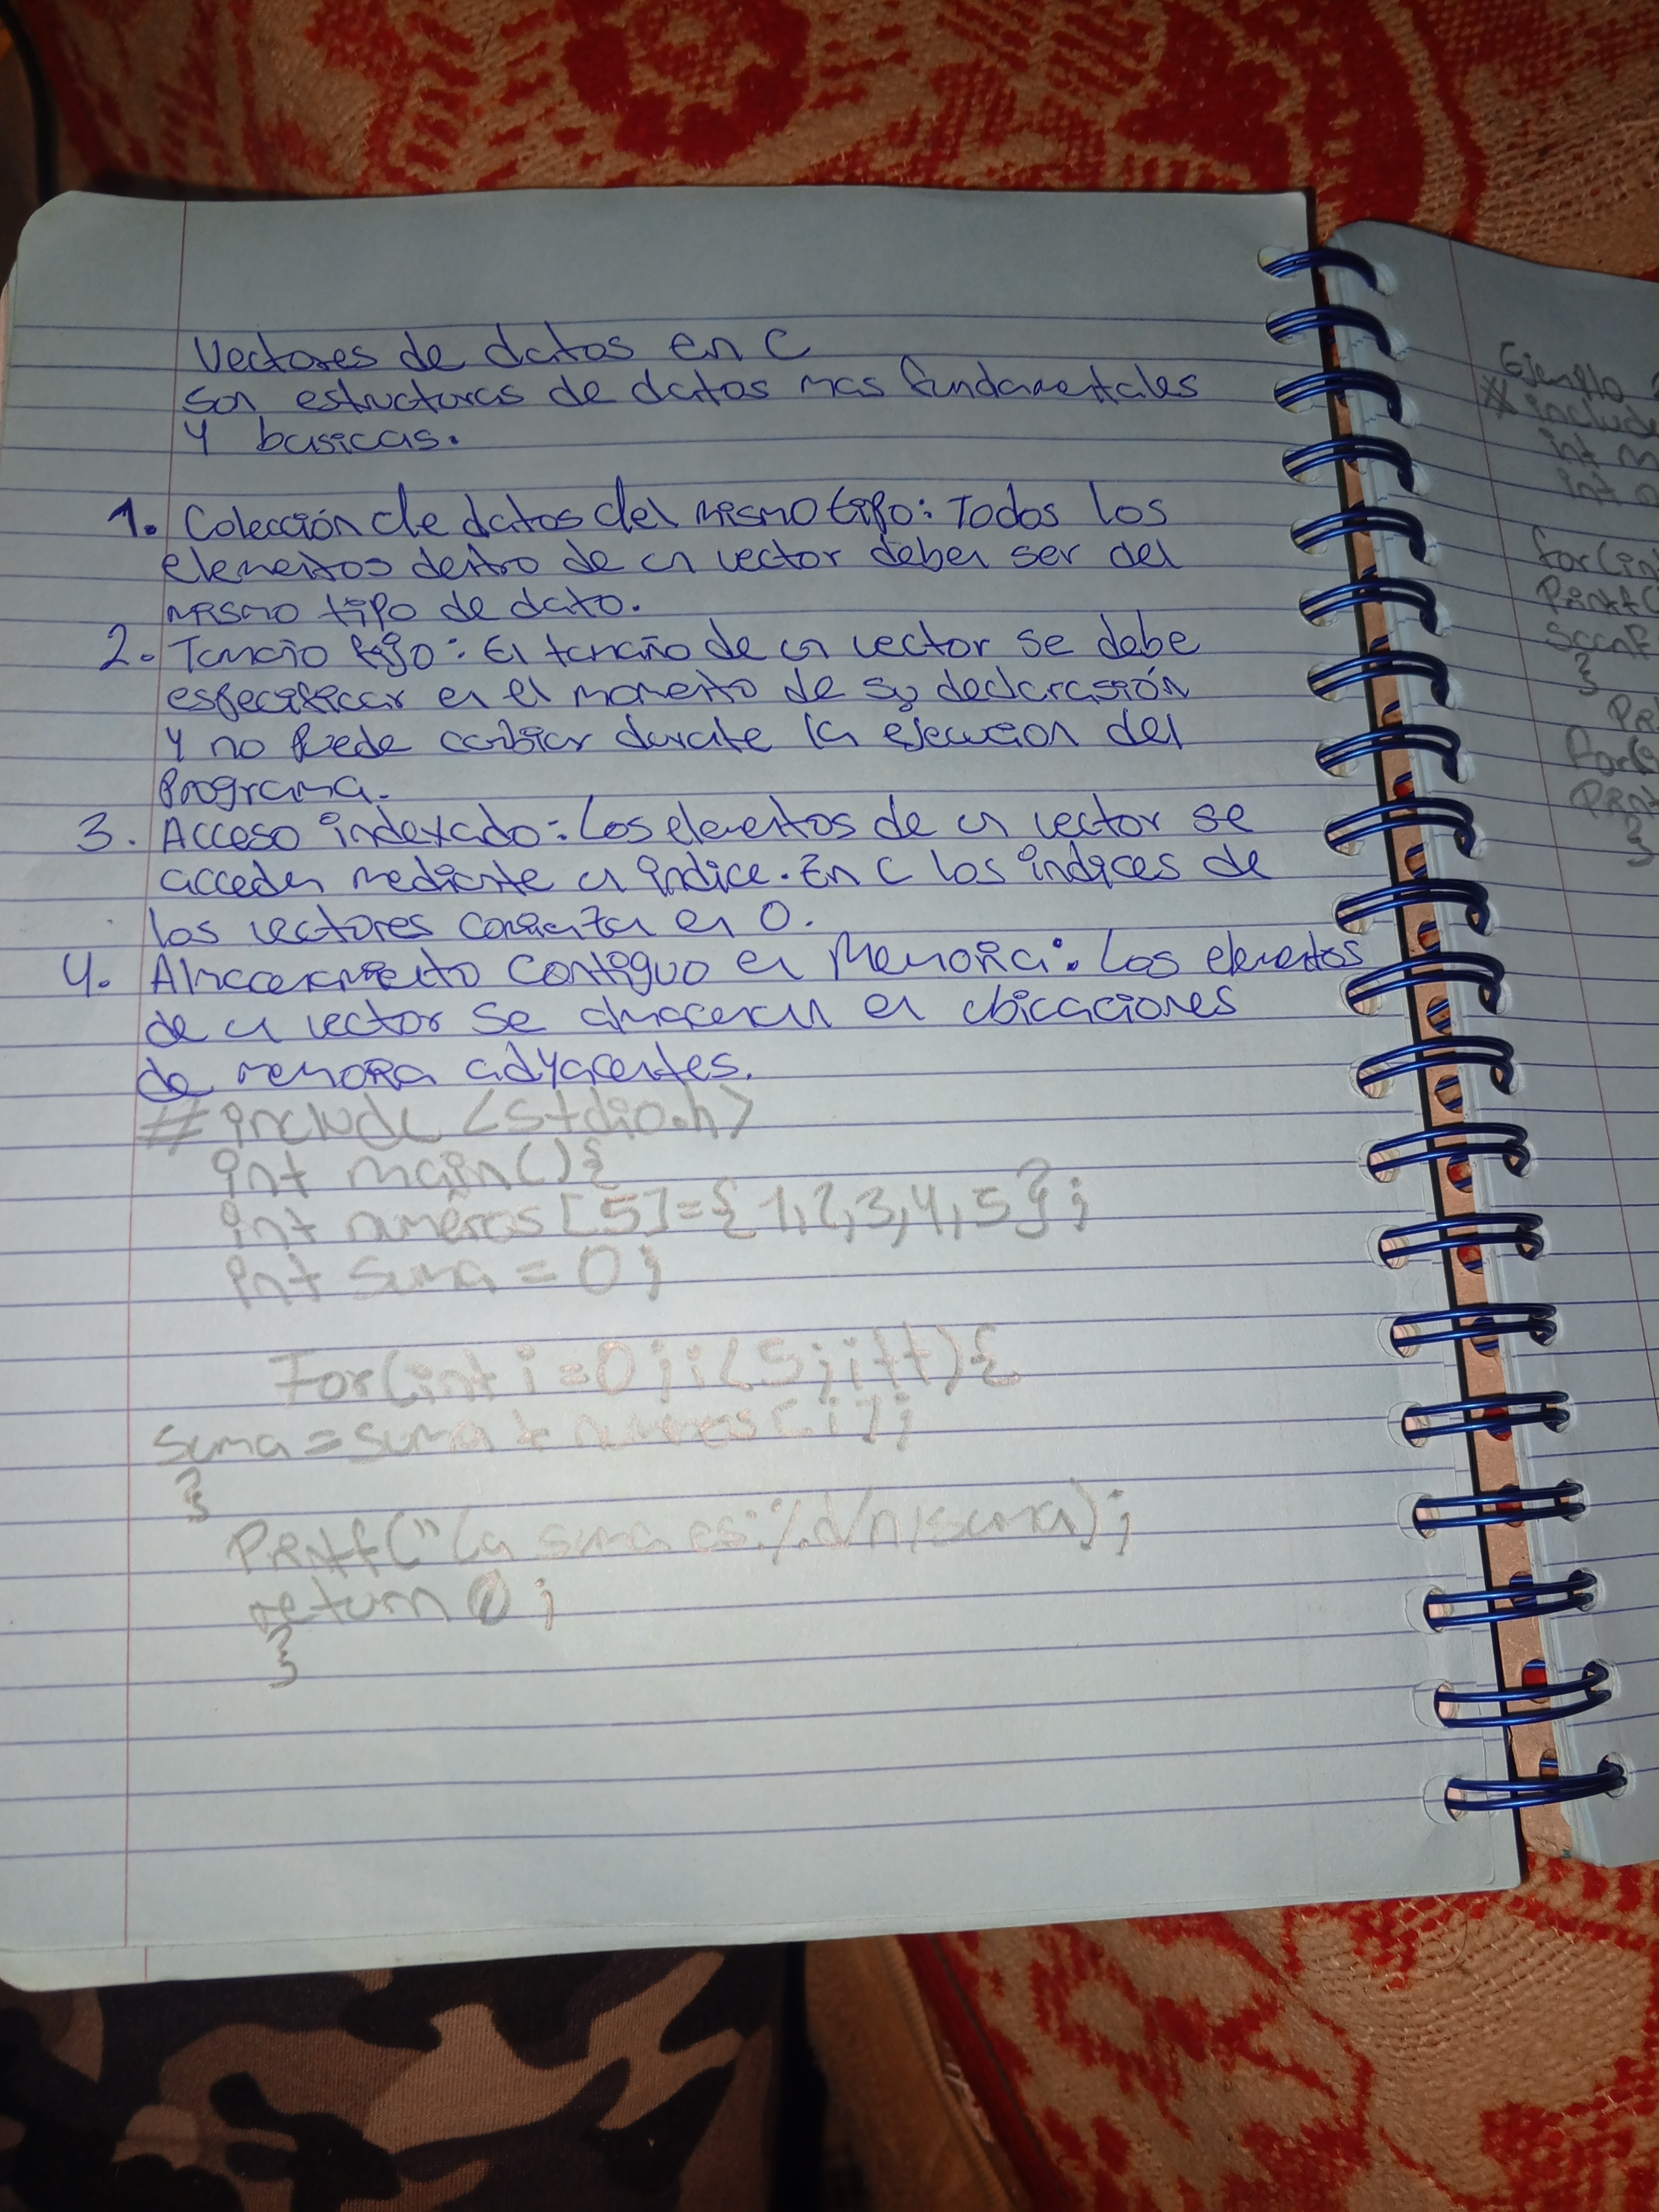 Vectores de datos en C
Son estructuras de datos mas fundamentales
y basicas.
1. Colección de datos del mismo tipo: Todos los
elementos dentro de un vector deben ser del
mismo tipo de dato.
2. Tamaño fijo: El tamaño de un vector se debe
especificar en el momento de su declarasión
y no puede cambiar durante la ejecucion del
Programa.
3. Acceso indexado: Los elementos de un vector se
acceden mediante un índice. En C los índices de
los vectores comienzan en 0.
4. Almacenamiento contiguo en Memoria: Los elementos
de un vector se almacenan en ubicaciones
de memoria adyacentes.
#include <stdio.h>
int main(){
int numeros[5]={1,2,3,4,5};
int suma = 0;
For(int i=0;i<5;i++){
suma=suma + numeros[i];
}
Printf("La suma es:%d/n,suma);
return 0;
}
Ejemplo
#include
int m
int
for(int
Printf(
Scanf
}
Pri
For(i
Print
}